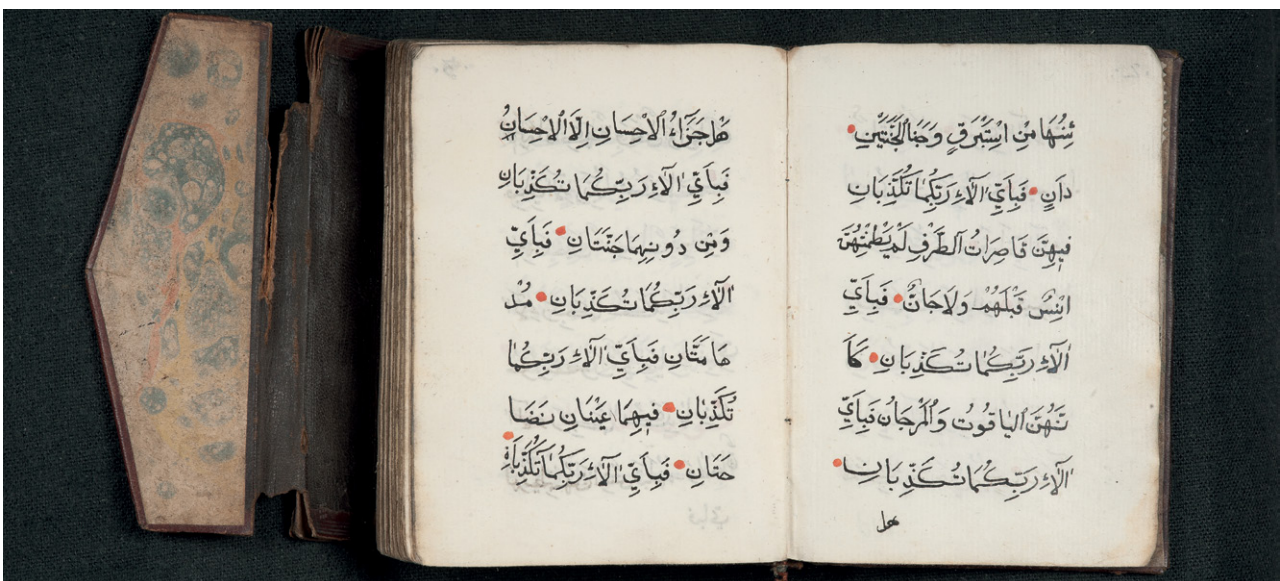 ئِنُهَا مِن اسْتَبْرَقٍ وَجَنَا الجَنَّتَيْنِ
دَانٍ فَبِأَيِّ اٰلَآءِ رَبِّكُمَا تُكَذِّبَانِ
فِيهِنَّ قَاصِرَاتُ الطَّرْفِ لَمْ يَطْمِثْهُنَّ
اِنْسٌ قَبْلَهُمْ وَلَاجَانٌّ فَبِأَيِّ
اٰلَآءِ رَبِّكُمَا تُكَذِّبَانِ كَاَ
نَّهُنَّ الْيَاقُوتُ وَالْمَرْجَانُ فَبِأَيِّ
اٰلَآءِ رَبِّكُمَا تُكَذِّبَانِ
هل
هَل جَزَٓاءُ الْاِحْسَانِ اِلَّا الْاِحْسَانُ
فَبِأَيِّ اٰلَآءِ رَبِّكُمَا تُكَذِّبَانِ
وَمِن دُونِهِمَا جَنَّتَانِ فَبِأَيِّ
اٰلَآءِ رَبِّكُمَا تُكَذِّبَانِ مُدْ
هَامَّتَانِ فَبِأَيِّ اٰلَآءِ رَبِّكُمَا
تُكَذِّبَانِ فِيهِمَا عَيْنَانِ نَضَّا
خَتَانِ فَبِأَيِّ اٰلَآءِ رَبِّكُمَا تُكَذِّبَانِ
فبأي